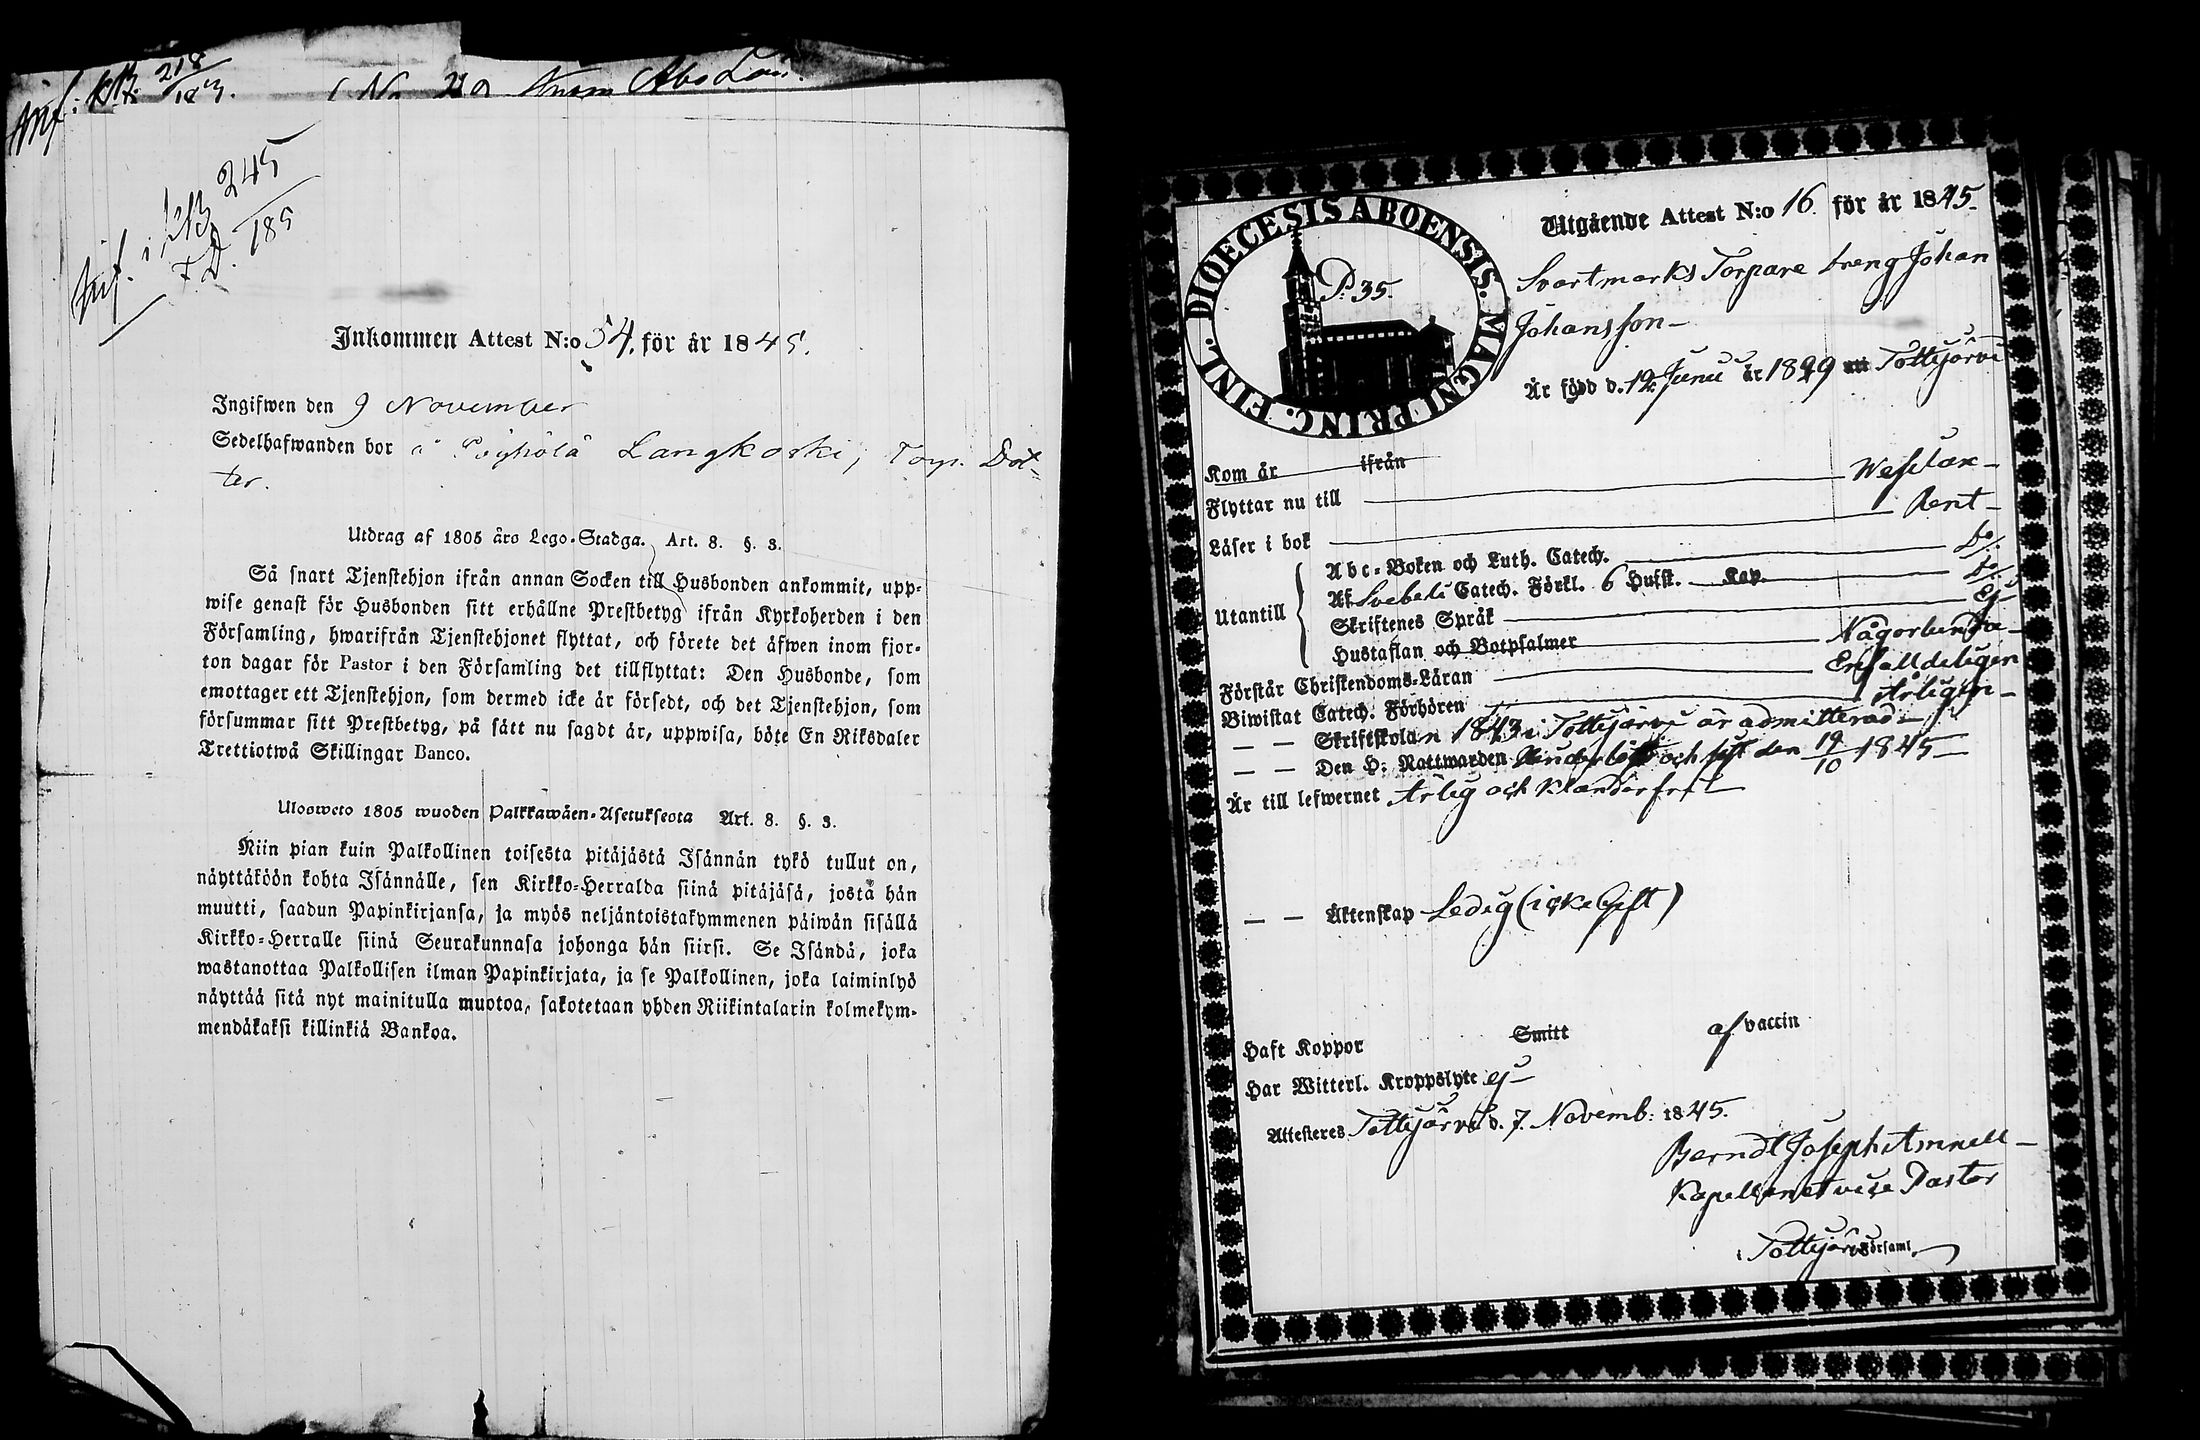 Inf. i KB. 218
183.
No 210 från Åbo Län.
Inf. i KB 245
F.D. 185
Inkommen Attest N:o 54. för år 1845.
Ingifwen den 9 November
Sedelhafwanden bor å Langkoski, Torp. Dot-
ter.
Utdrag af 1805 års Lego-Stadga. Art. 8. §. 3.
Så snart Tjenstehjon ifrån annan Socken till Husbonden ankommit, upp-
wise genast för Husbonden sitt erhållne Prestbetyg ifrån Kyrkoherden i den
Församling, hwarifrån Tjenstehjonet flyttat, och förete det äfwen inom fjor-
ton dagar för Pastor i den Församling det tillflyttat: Den Husbonde, som
emottager ett Tjenstehjon, som dermed icke är försedt, och det Tjenstehjon, som
försummar sitt Prestbetyg, på sätt nu sagdt är, uppwisa, böte En Riksdaler
Trettiotwå Skillingar Banco.
Ulosweto 1805 wuoden Palkkawäen-Asetuksesta Art. 8. §. 3.
Niin pian kuin Palkollinen toisesta pitäjästä Isännän tykö tullut on,
näyttäköön kohta Isännälle, sen Kirkko-Herralda siinä pitäjäsä, josta hän
muutti, saadun Papinkirjansa, ja myös neljäntoistakymmenen päiwän sisällä
Kirkko-Herralle siinä Seurakunnasa johonga hän siirsi. Se Isändä, joka
wastanottaa Palkollisen ilman Papinkirjata, ja se Palkollinen, joka laiminlyö
näyttää sitä nyt mainitulla muotoa, sakotetaan yhden Riikintalarin kolmekym-
mendäkaksi killinkiä Bankoa.
DIOECESIS ABOENSIS. MAGNI PRINC. FINL.
P. 35.
Utgående Attest N:o 16. för år 1845.
Svartmarks Torpare dreng Johan
Johansson
Är född d. 12 Junii år 1829 uti Tottijärvi
Kom år ifrån
Flyttar nu till Wesilax
Läser i bok Rent
Utantill
Abc-Boken och Luth. Catech. do
Af Svebeli Catech. Förkl. 6 Hufst. Kap. do
Skriftenes Språk Ej
Hustaflan och Botpsalmer
Förstår Christendoms-Läran Någorlunda
Biwistat Catech. Förhören Enfalldeligen
Skriftskolan 1843 i Tottijärvi är admitterad Årligen
Den H. Nattwarden och sist den 19/10 1845
Är till lefwernet Ärlig och klanderfri
Äktenskap Ledig (icke Gift)
Haft Koppor Smitt af vaccin
Har Witterl. Kroppslyte ej
Attesteres Tottijärvi d. 7. Novemb: 1845.
Berndt Joseph Amnell
Kapellan et vice Pastor
i Tottijärvi Församl.